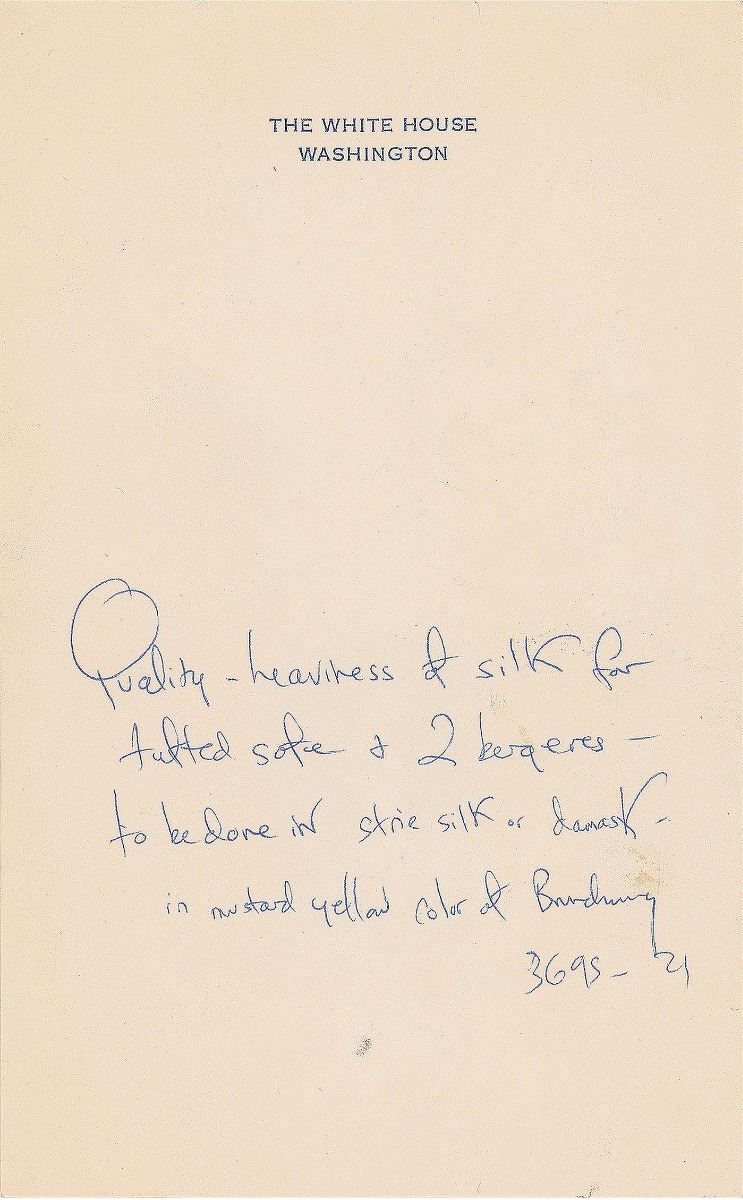 THE WHITE HOUSE
WASHINGTON
Quality - heaviness of silk for
tufted sofa + 2 bergeres -
to be done in strie silk or damask -
in mustard yellow color of
3695 - 21